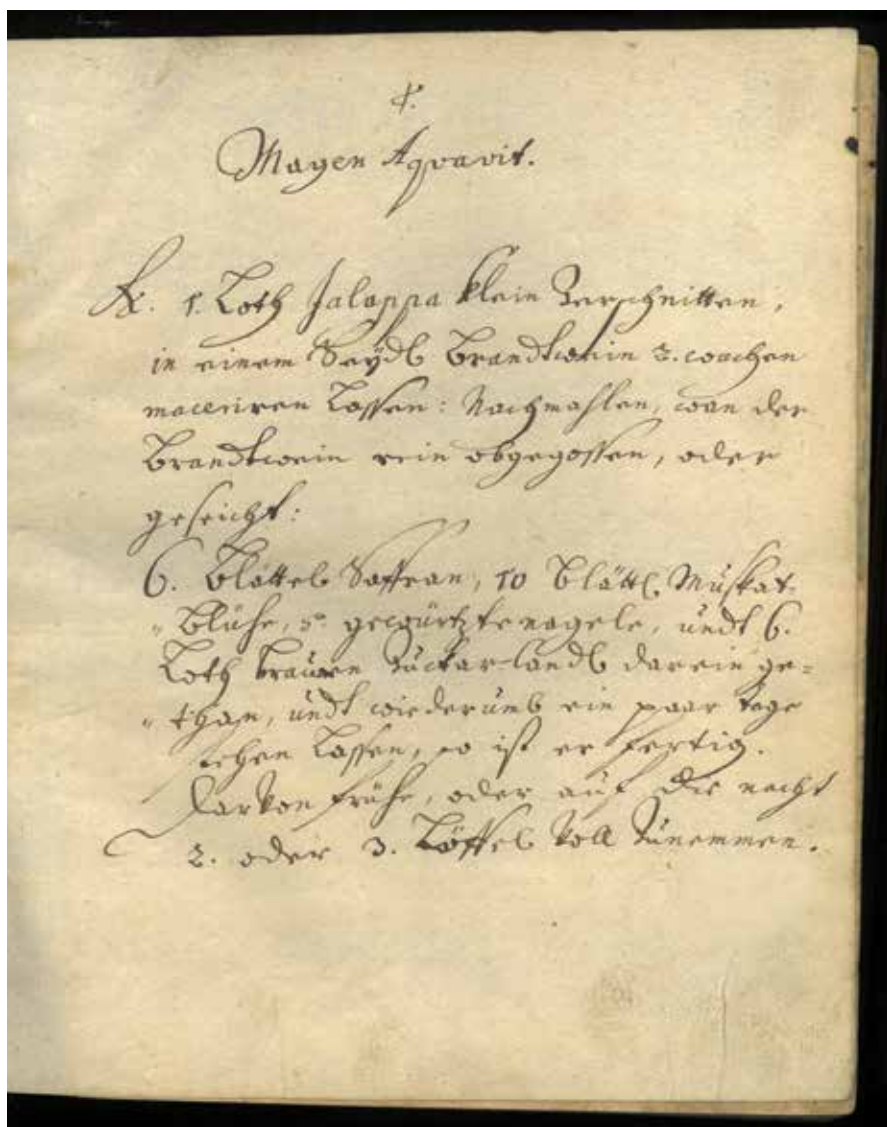 Magen Aqvavit.
Rx. 1. Loth Jalappa klein Zerschnitten,
in einem Seydl Brandtwein 3. wochen
maceriren Lassen: Nachmahlen, wan der
Brandtwein rein abgegossen, oder
geseicht:
6. Blättel Saffran, 10 Blättl. Muskat-
„ Blühe, gewürtztenagele, undt 6.
Loth braunen Zuckar-Candl darein ge=
„ than, undt wiederumb ein paar tage
stehen Lassen, so ist er fertig.
Darvon frühe, oder auf die nacht
2. oder 3. Löffel voll Zunemmen.